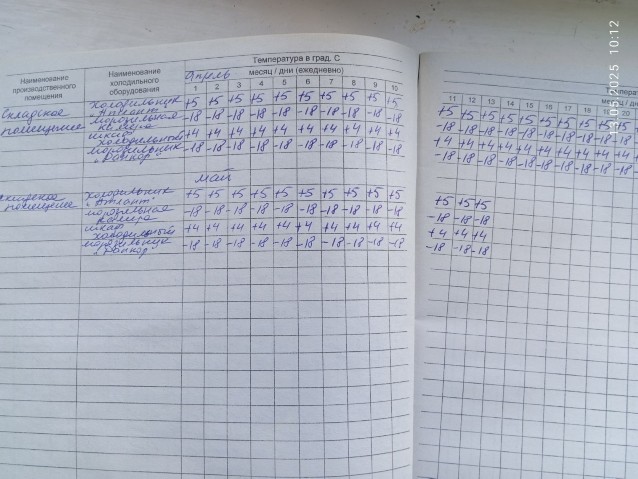 Температура в град. С
Наименование производственного помещения
Наименование холодильного оборудования
Апрель месяц / дни (ежедневно)
1 2 3 4 5 6 7 8 9 10
11 12 13 14 15 16 17 18 19 20
Складское помещение
холодильник "Атлант" +5 +5 +5 +5 +5 +5 +5 +5 +5 +5 +5 +5 +5 +5 +5 +5 +5 +5 +5 +5
морозильная камера -18 -18 -18 -18 -18 -18 -18 -18 -18 -18 -18 -18 -18 -18 -18 -18 -18 -18 -18 -18
шкаф холодильный +4 +4 +4 +4 +4 +4 +4 +4 +4 +4 +4 +4 +4 +4 +4 +4 +4 +4 +4 +4
морозильник -18 -18 -18 -18 -18 -18 -18 -18 -18 -18 -18 -18 -18 -18 -18 -18 -18 -18 -18 -18
май
помещение
холодильник "Атлант" +5 +5 +5 +5 +5 +5 +5 +5 +5 +5 +5 +5 +5
морозильная камера -18 -18 -18 -18 -18 -18 -18 -18 -18 -18 -18 -18 -18
шкаф холодильный +4 +4 +4 +4 +4 +4 +4 +4 +4 +4 +4 +4 +4
морозильник -18 -18 -18 -18 -18 -18 -18 -18 -18 -18 -18 -18 -18
05.2025 10:12